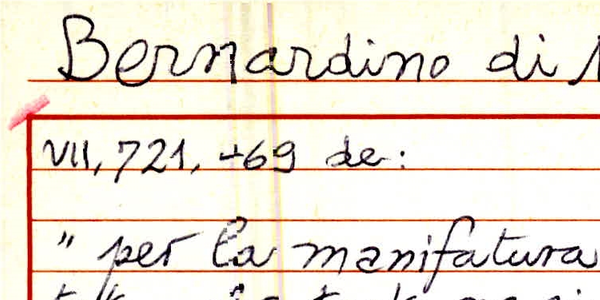 Bernardino di
VII, 721, 469 de:
" per la manifatura